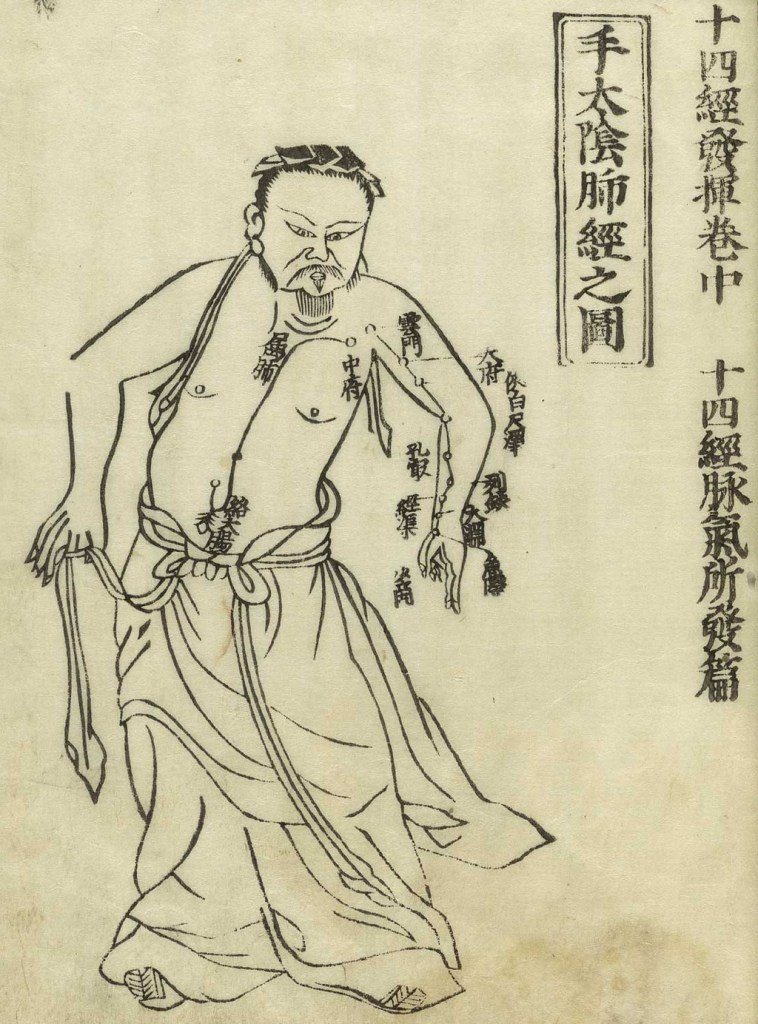 十四經發揮卷中　十四經脉氣所發篇
手太陰肺經之圖
雲門
中府
屬肺
天府
俠白
尺澤
孔最
列缺
經渠
太淵
魚際
少商
絡大腸